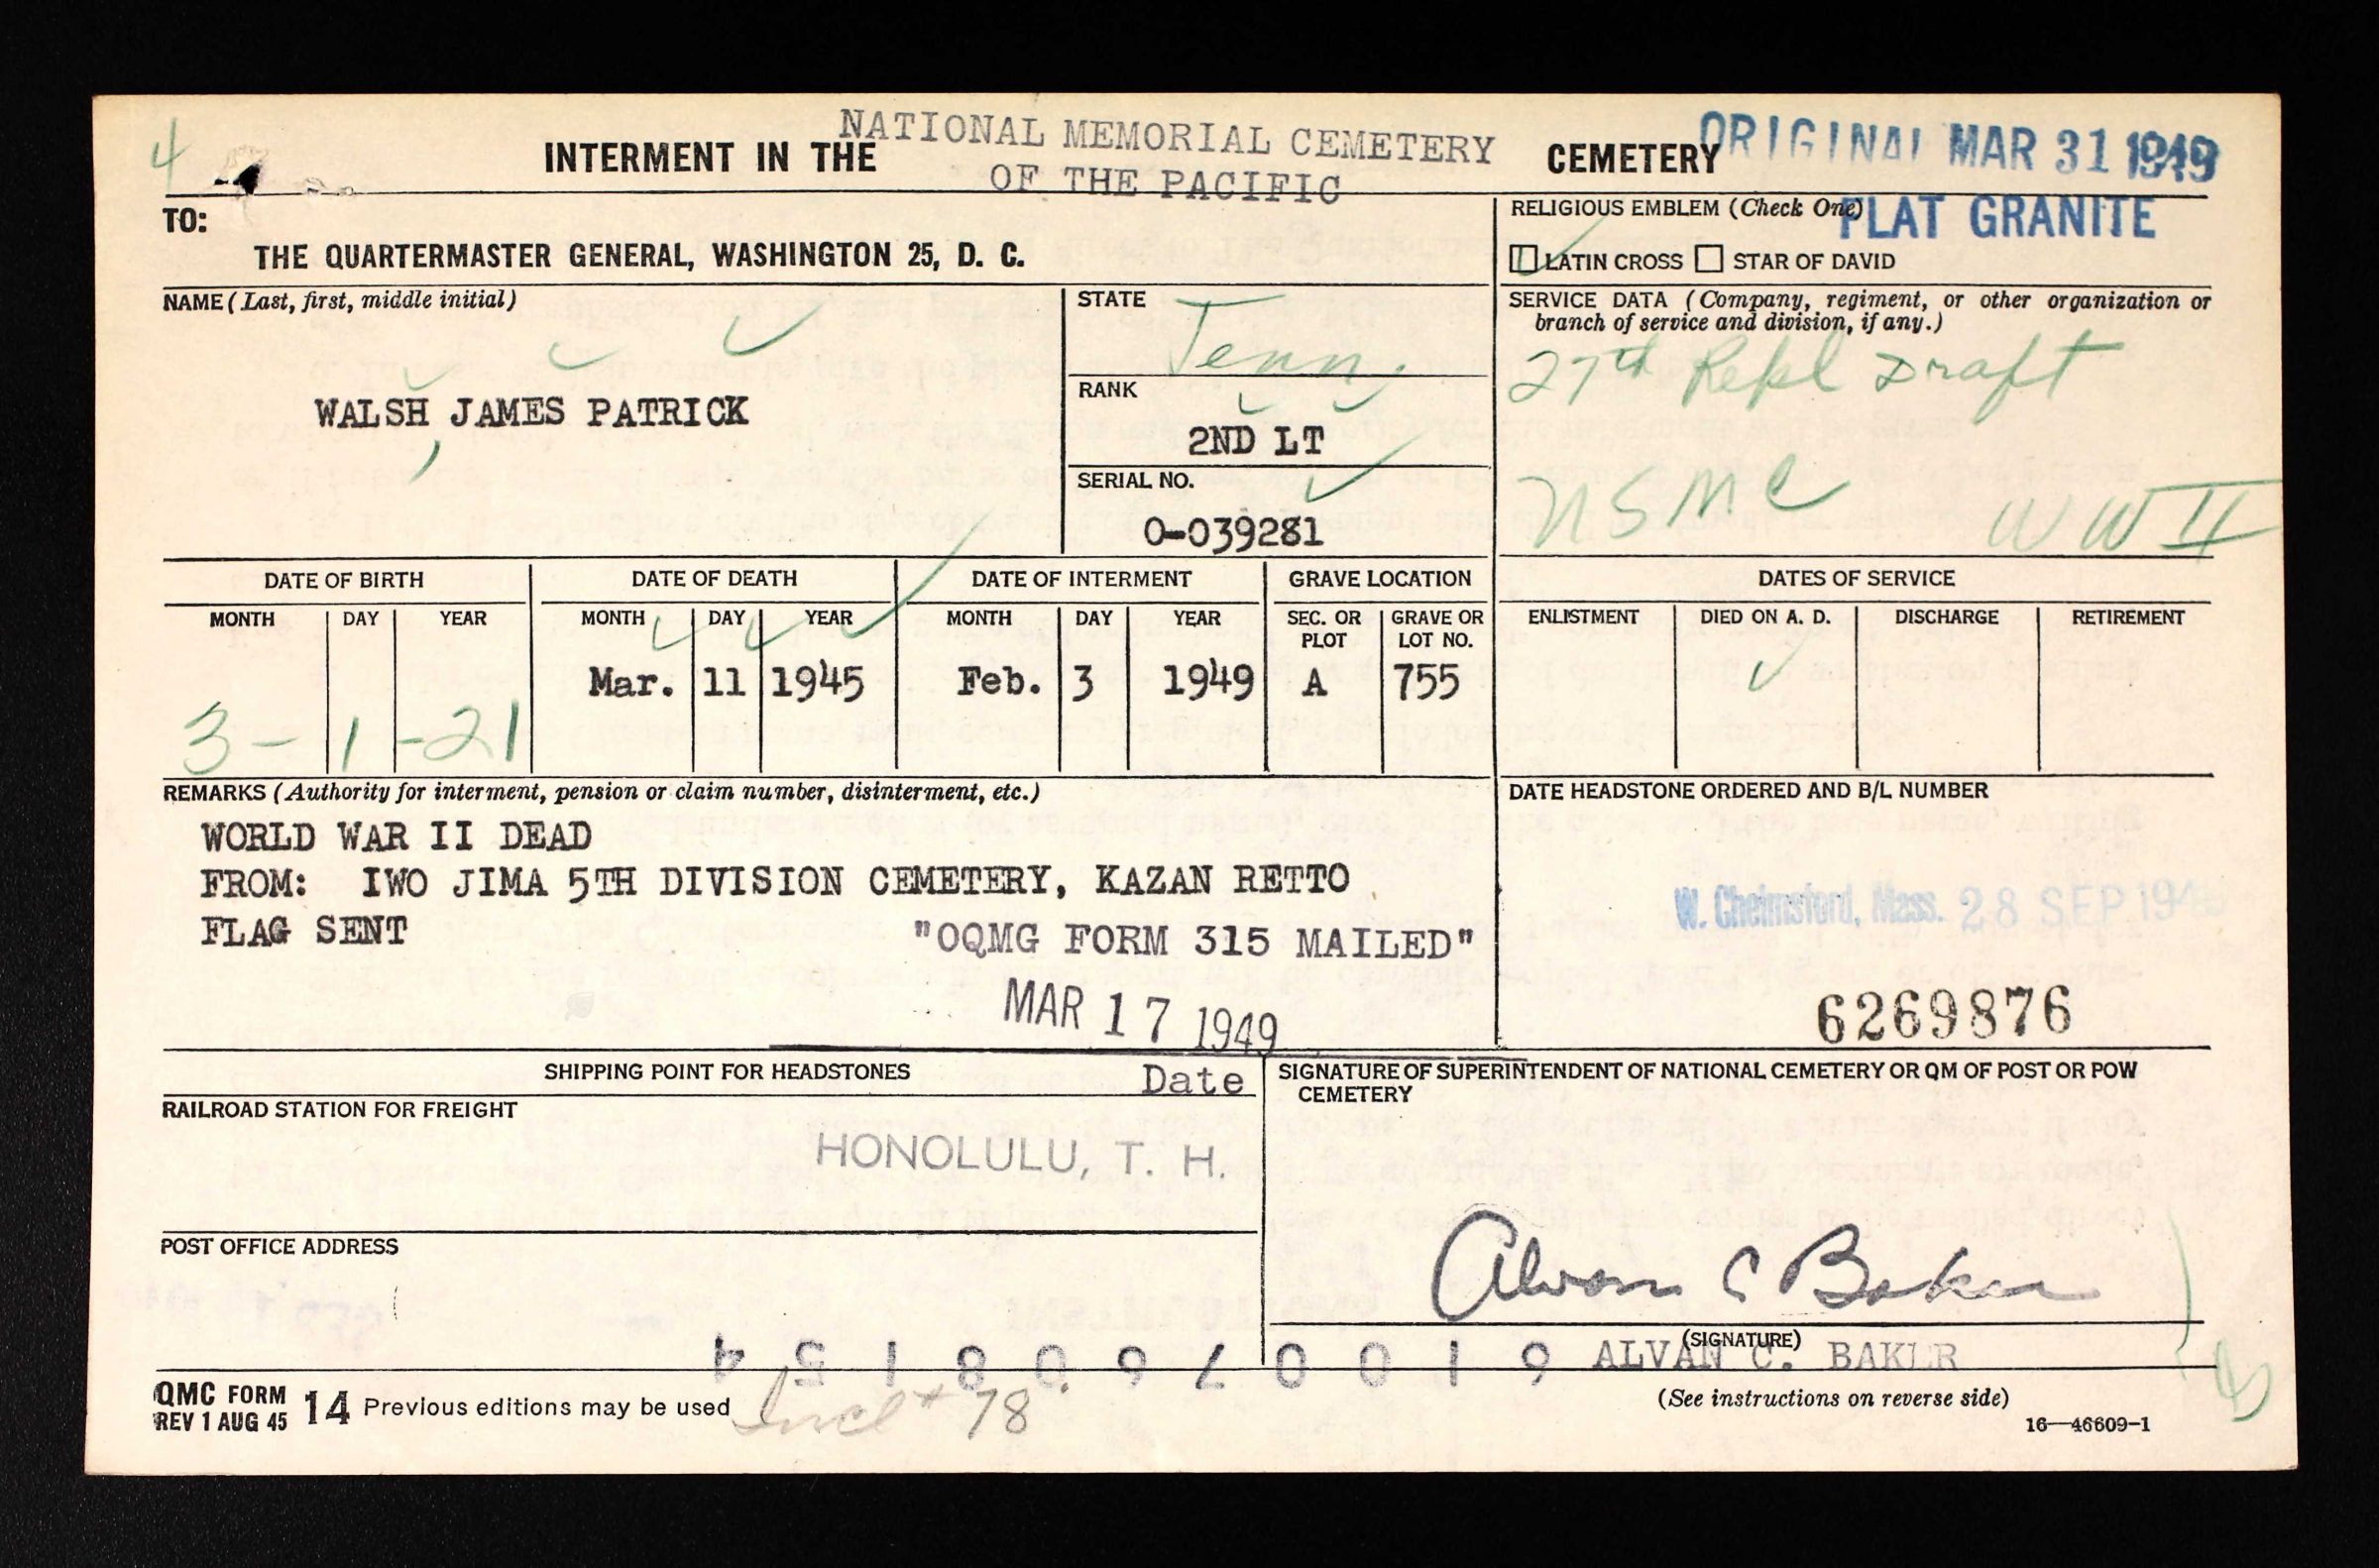 4
NATIONAL MEMORIAL CEMETERY
INTERMENT IN THE CEMETERY
OF THE PACIFIC
ORIGINAL MAR 31 1949
TO:
THE QUARTERMASTER GENERAL, WASHINGTON 25, D. C.
RELIGIOUS EMBLEM (Check One)
FLAT GRANITE
LATIN CROSS STAR OF DAVID
NAME (Last, first, middle initial)
WALSH, JAMES PATRICK
STATE
Tenn.
RANK
2ND LT
SERIAL NO.
O-039281
SERVICE DATA (Company, regiment, or other organization or
branch of service and division, if any.)
27th Repl Draft
USMC WW II
DATE OF BIRTH DATE OF DEATH DATE OF INTERMENT GRAVE LOCATION DATES OF SERVICE
MONTH DAY YEAR MONTH DAY YEAR MONTH DAY YEAR SEC. OR PLOT GRAVE OR LOT NO. ENLISTMENT DIED ON A. D. DISCHARGE RETIREMENT
Mar. 11 1945 Feb. 3 1949 A 755
3-1-21
REMARKS (Authority for interment, pension or claim number, disinterment, etc.)
WORLD WAR II DEAD
FROM: IWO JIMA 5TH DIVISION CEMETERY, KAZAN RETTO
FLAG SENT
"OQMG FORM 315 MAILED"
MAR 17 1949
Date
DATE HEADSTONE ORDERED AND B/L NUMBER
W. Chelmsford, Mass. 28 SEP
6269876
SHIPPING POINT FOR HEADSTONES
RAILROAD STATION FOR FREIGHT
HONOLULU, T. H.
POST OFFICE ADDRESS
SIGNATURE OF SUPERINTENDENT OF NATIONAL CEMETERY OR QM OF POST OR POW
CEMETERY
Alvan C Baker
(SIGNATURE)
ALVAN C. BAKER
QMC FORM 14 Previous editions may be used
REV 1 AUG 45
Incl # 78
(See instructions on reverse side)
16—46609-1